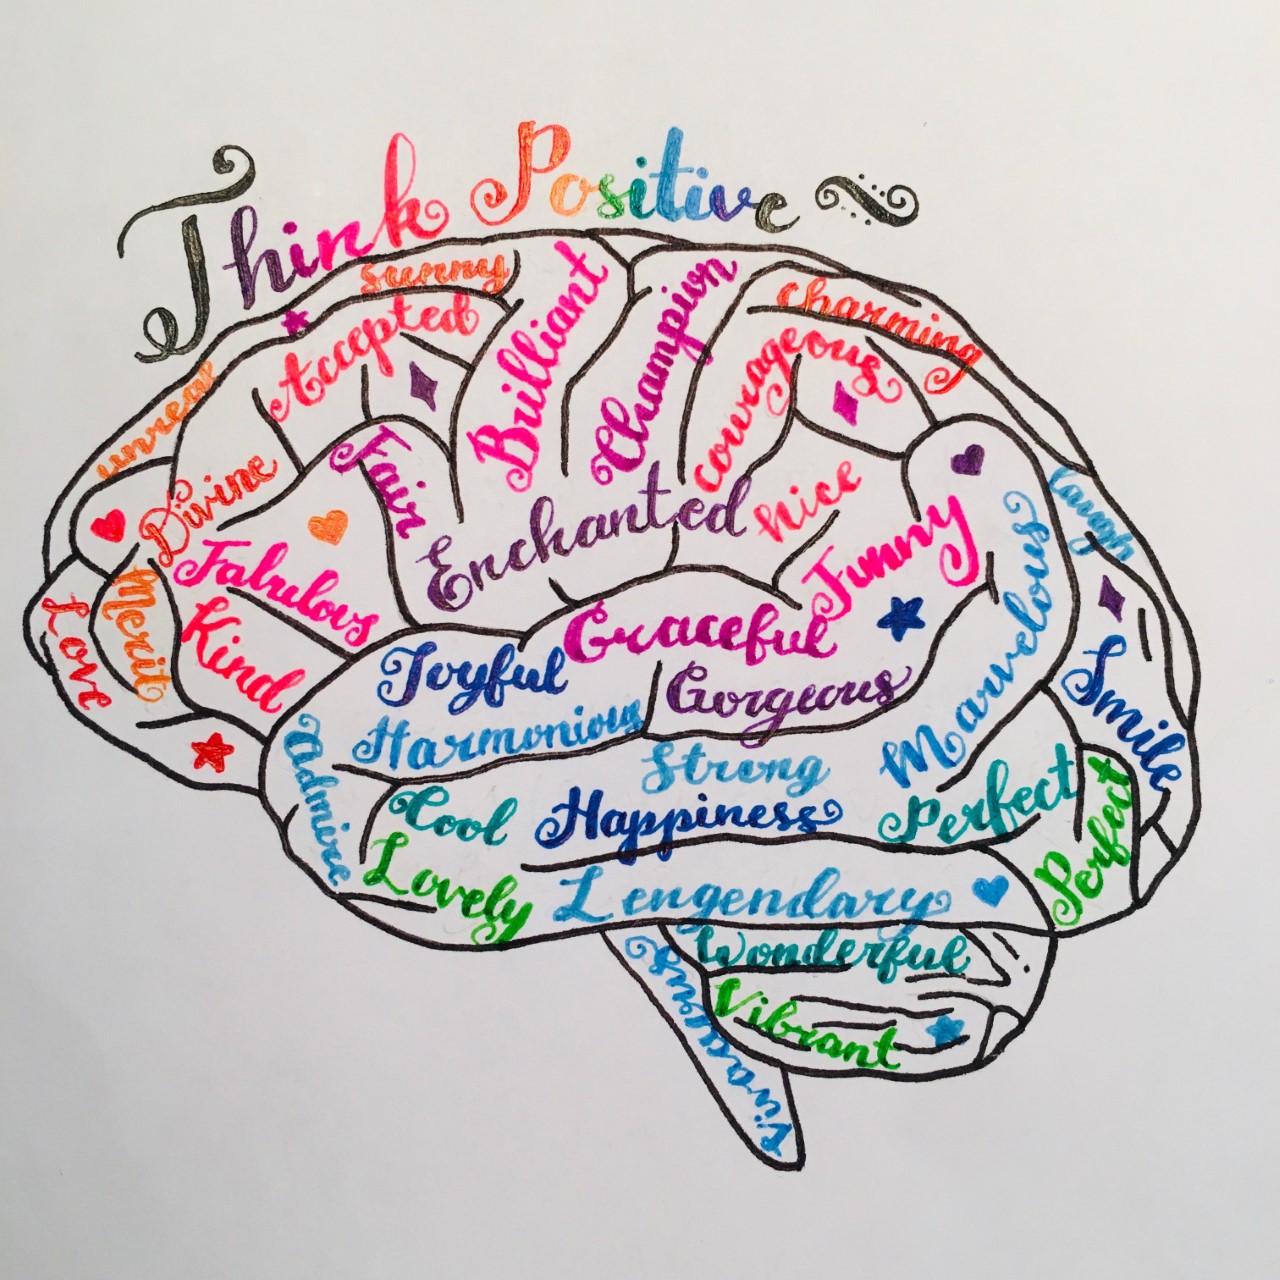 Think Positive
sunny
Accepted
Brilliant
Champion
charming
courageous
unreal
Divine
Fair
Enchanted
Nice
Funny
Laugh
Fabulous
Merit
Love
Kind
Marvelous
Graceful
Joyful
Gorgeous
Smile
Harmonious
Admire
Strong
Cool
Happiness
Perfect
Perfect
Lovely
Lengendary
Wonderful
Vibrant